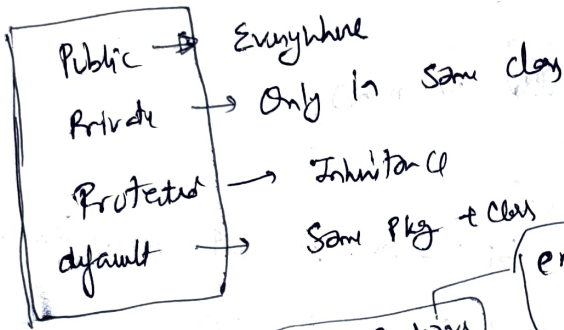 Public → Everywhere
Private → Only in same class
Protected → Inheritance
default → Same Pkg + Class